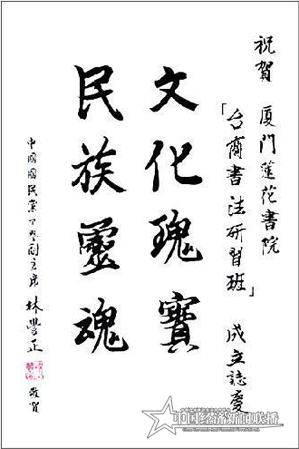 祝賀 厦门蓮花書院
「台商書法研習班」 成立誌慶
文化瑰寶
民族靈魂
中國國民黨副主席 林豐正 敬賀
中国经济新闻联播